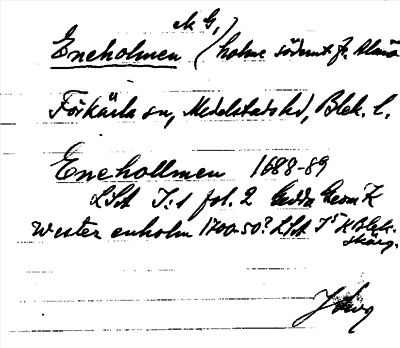 Eneholmen (holme söder
Förkärla sn, Medelstads hd, Blek. l.
Enehollmen 1688-89
LSA I:1 fol. 2 Geom K
Wester enholm 1700-50? LSA I5 K Blek.
skärg.